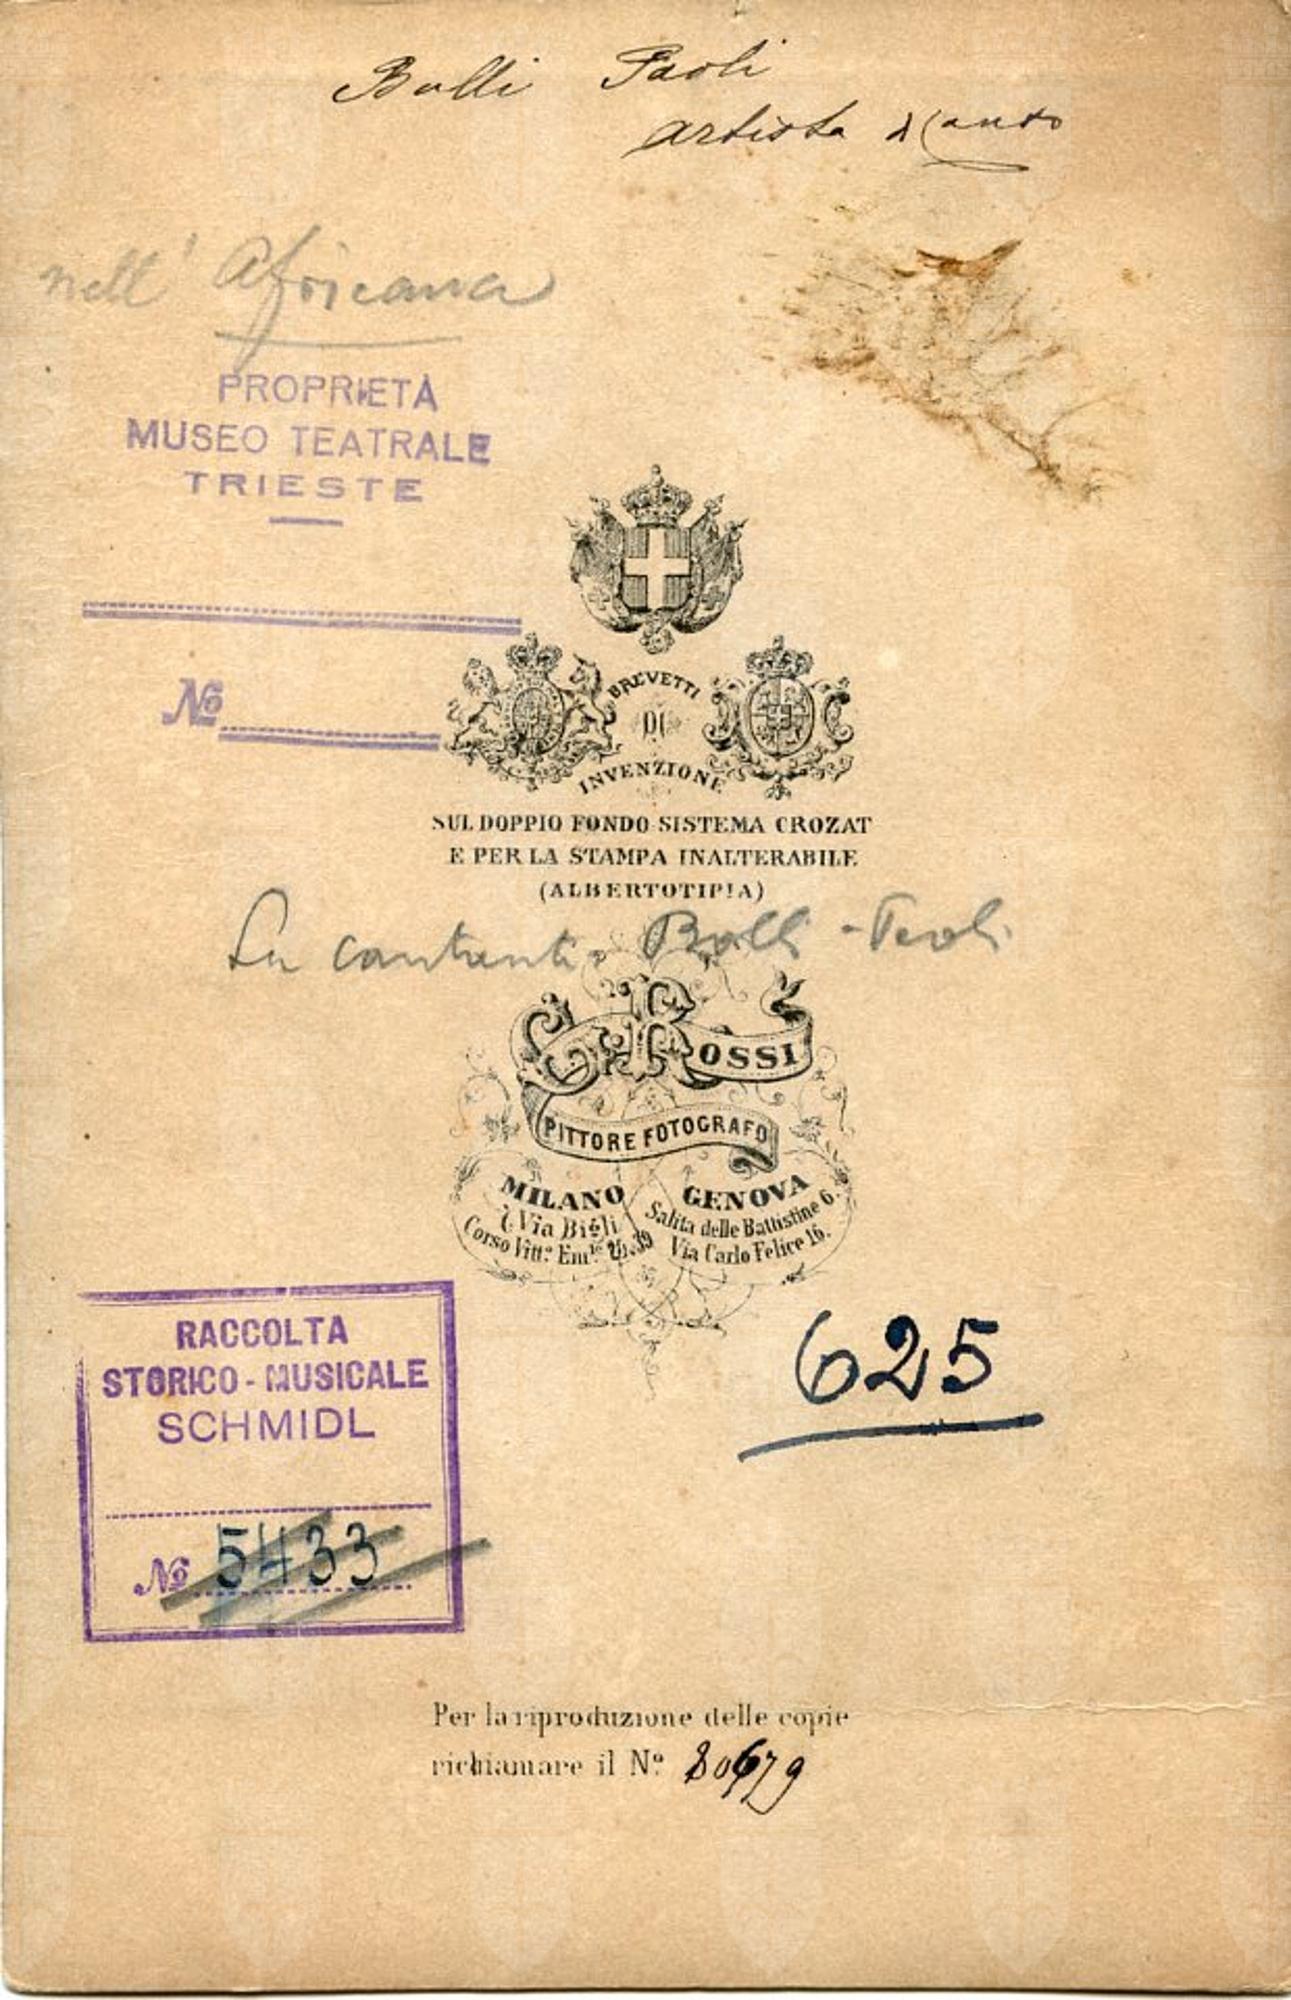 Bulli Paoli
artista di Canto
nell' Africana
PROPRIETÀ
MUSEO TEATRALE
TRIESTE
No
BREVETTI
DI
INVENZIONE
SUL DOPPIO FONDO SISTEMA CROZAT
E PER LA STAMPA INALTERABILE
(ALBERTOTIPIA)
La cantante Bolli-Paoli
G. ROSSI
PITTORE FOTOGRAFO
MILANO
Via Bigli
Corso Vittº Emle
GENOVA
Salita delle Battistine 6.
Via Carlo Felice 16.
625
RACCOLTA
STORICO-MUSICALE
SCHMIDL
No 5433
Per la riproduzione delle copie
richiamare il Nº 80679